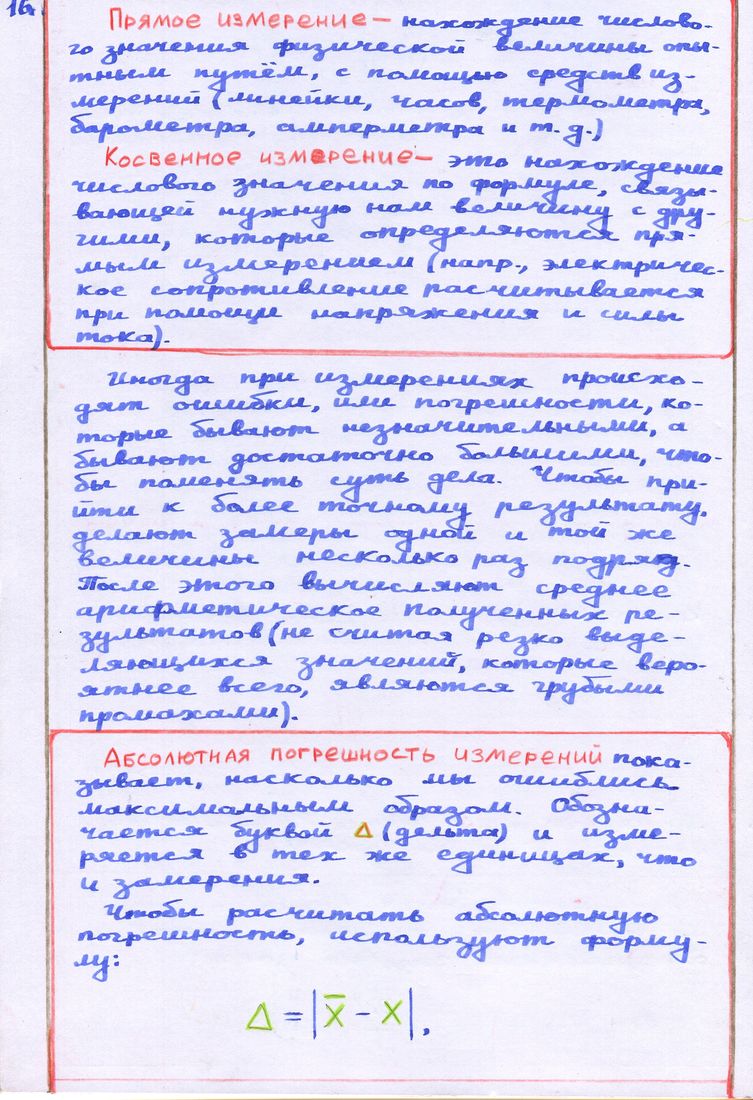 16.
Прямое измерение — нахождение числово-
го значения физической величины опы-
тным путём, с помощью средств из-
мерений (линейки, часов, термометра,
барометра, амперметра и т. д.)
Косвенное измерение — это нахождение
числового значения по формуле, связы-
вающей нужную нам величину с дру-
гими, которые определяются пря-
мым измерением (напр., электричес-
кое сопротивление расчитывается
при помощи напряжения и силы
тока).
Иногда при измерениях происхо-
дят ошибки, или погрешности, ко-
торые бывают незначительными, а
бывают достаточно большими, что-
бы поменять суть дела. Чтобы при-
йти к более точному результату,
делают замеры одной и той же
величины несколько раз подряд.
После этого вычисляют среднее
арифметическое полученных ре-
зультатов (не считая резко выде-
ляющихся значений, которые веро-
ятнее всего, являются грубыми
промахами).
Абсолютная погрешность измерений пока-
зывает, насколько мы ошиблись
максимальным образом. Обозна-
чается буквой Δ (дельта) и изме-
ряется в тех же единицах, что
и замерения.
Чтобы расчитать абсолютную
погрешность, используют форму-
лу:
Δ = |x̅ - x|,